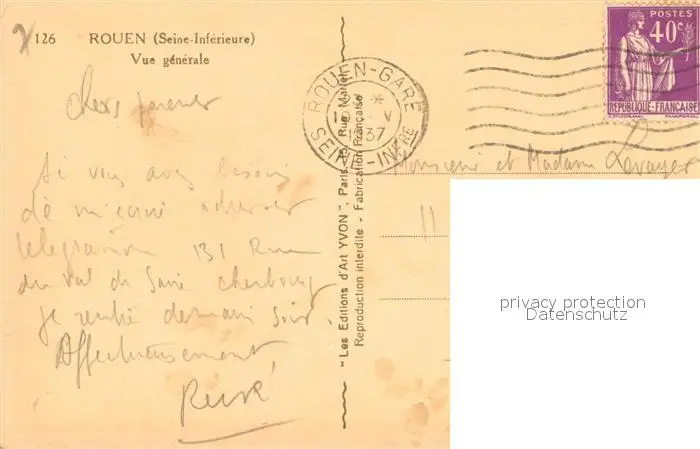 126 ROUEN (Seine-Inférieure)
Vue générale
Chers parents
Si vous avez besoin
de m'écrire adresser
télégramme 131 Rue
du Val de Saire Cherbourg
je rentre demain soir.
Affectueusement
René
"Les Editions d'Art YVON", Paris, 15, Rue Martel
Reproduction interdite - Fabrication Française
ROUEN-GARE
37
SEINE-INFRE
POSTES
40c
REPUBLIQUE-FRANÇAISE
Monsieur et Madame Levayer
11
privacy protection
Datenschutz